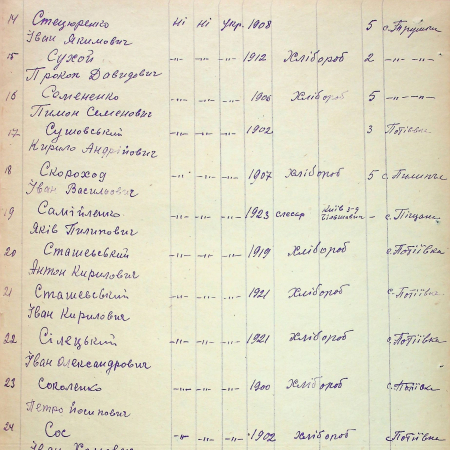 14 Стецюренко Ні Ні Укр. 1908 5
Іван Якимович
15 Сухой -"- -"- -"- 1912 Хлібороб 2 -"- -"-
Прокоп Давидович
16 Самененко -"- -"- -"- 1906 Хлібороб 5 -"- -"-
Пимон Семенович
17 Сушовський -"- -"- -"- 1902 3 Потіївка
Кирило Андрійович
18 Скороход -"- -"- -"- 1907 Хлібороб 5
Іван Васильович
19 Самійленко -"- -"- -"- 1923 слесар Київ з-д - с. Піщана
Яків Пилипович
20 Сташевський -"- -"- -"- 1919 Хлібороб с. Потіївка
Антон Кирилович
21 Сташевський -"- -"- -"- 1921 Хлібороб с. Потіївка
Іван Кирилович
22 Сілецький -"- -"- -"- 1921 Хлібороб с. Потіївка
Іван Олександрович
23 Соколенко -"- -"- -"- 1900 Хлібороб с.
Петро Йосипович
24 Сос -"- -"- -"- 1902 Хлібороб Потіївка
Іван